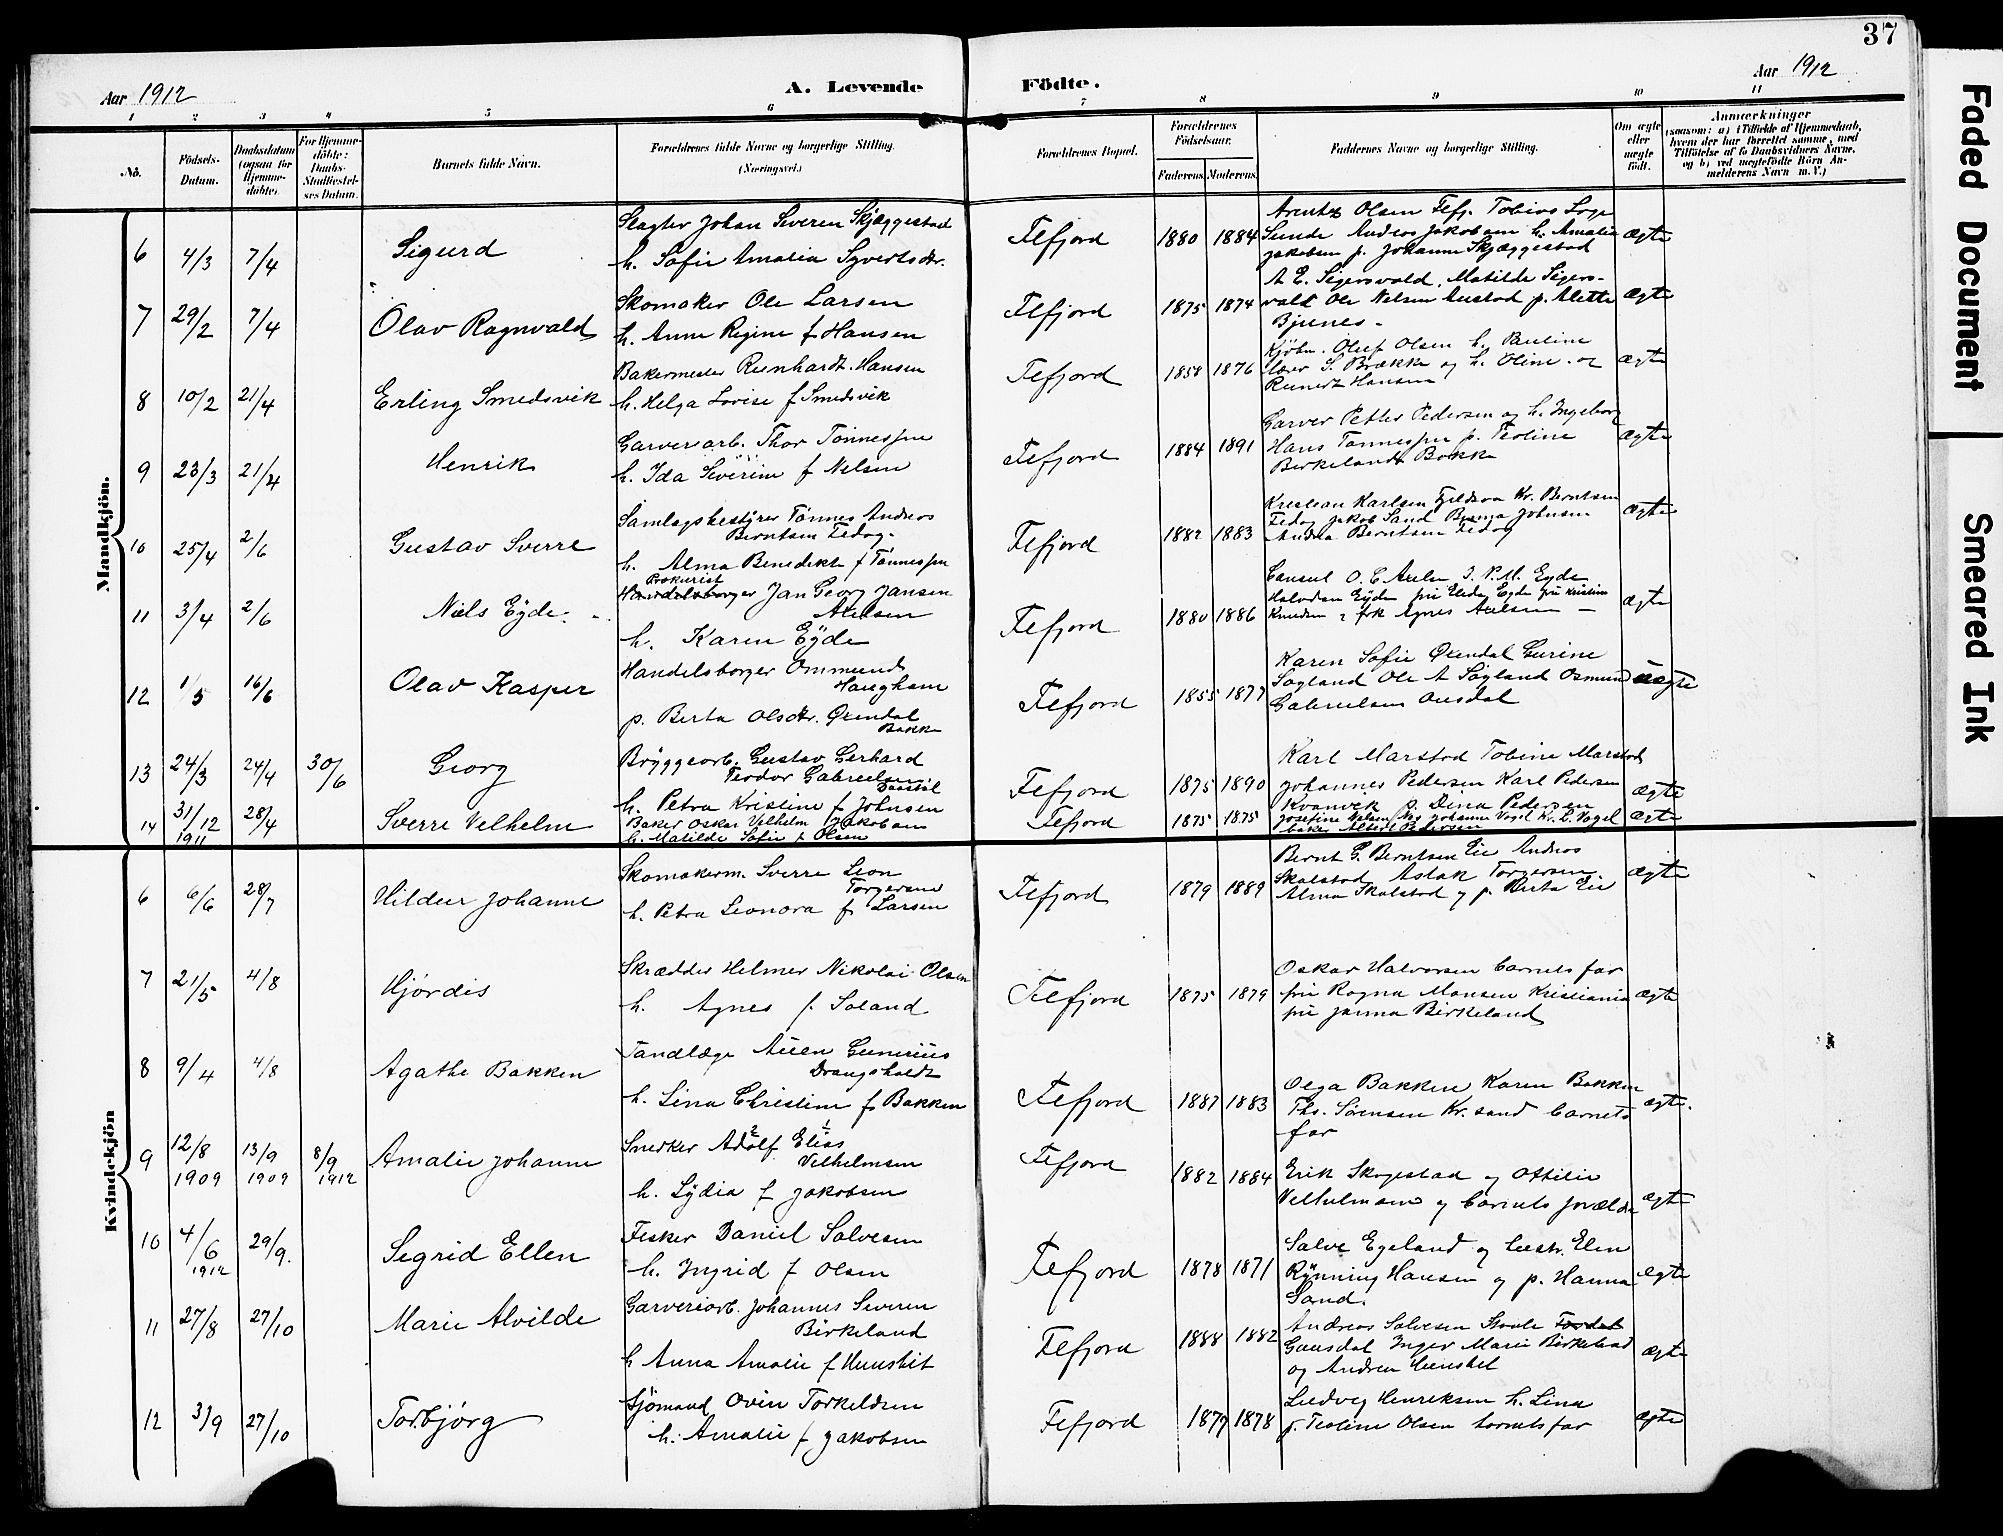 37
Aar 1912
A. Levende
Födte.
Aar 1912
1 2 3 4 5 6 7 8 9 10 11
No.
Födsels-Datum.
Daabsdatum (ogsaa for Hjemmedöbte).
For Hjemmedöbte: Daabs-Stadfæstelses Datum.
Barnets fulde Navn.
Forældrenes fulde Navne og borgerlige Stilling. (Næringsvei.)
Forældrenes Bopæl.
Forældrenes Födselsaar.
Faderens. Moderens.
Faddernes Navne og borgerlige Stilling.
Om ægte eller uægte födt.
Anmærkninger
(saasom: a) i Tilfælde af Hjemmedaab, hvem der har forrettet samme, med Tilföielse af to Daabsvidners Navne, og b) ved uægtefödte Börn Anmelderens Navn m. V.)
Mandkjön.
6 4/3 7/4 Sigurd
Slagter Johan Severin Skjæggestad
h. Sofie Amalia Syvertsdr.
Flefjord 1880 1884
Arentz Olsen Flfj. Tobias Loge
Sunde Andreas Jakobsen h. Amalie
Jakobsen p. Johanne Skjæggestad
ægte
7 29/2 7/4 Olav Ragnvald
Skomaker Ole Larsen
h. Anne Regine f Hansen
Flefjord 1875 1874
A E. Sigersvold, Matilde Sigers-
vold Ole Nelsen Austad p. Alette
Bjunes -
ægte
8 10/2 21/4 Erling Smedsvik
Bakermester Reinhardt Hansen
h. Helga Lovise f Smedsvik
Flefjord 1858 1876
Kjöbm. Oluf Olsen h. Pauline
lærer S. Brække og h. Oline og
Reinert Hansen
ægte
9 23/3 21/4 Henrik
Garveriarb. Thor Tönnessen
h. Ida Severine f Nelsen
Flefjord 1884 1891
Garver Petter Pedersen og h. Ingeborg
Hans Tönnessen p. Teoline
Birkeland Bakke
ægte
10 25/4 2/6 Gustav Sverre
Samlagsbestyrer Tönnes Andreas
Berntsen Fedog.
h. Alma Benedikte f Tönnessen
Flefjord 1882 1883
Kristian Karlsen Fjeldsaa Kr. Berntsen
Fedog Jakob Sand Berna Johnsen
Andrea Berntsen Fedog
ægte
11 3/4 2/6 Niels Eyde.
Prokurist
Handelsborger Jan Georg Jansen
Axelsen
h. Karen Eyde
Flefjord 1880 1886
Consul O. C. Axelsen J. P. M. Eyde
Halvdan Eyde fru Elida Eyde fru Kristine
Knudsen & frk Agnes Axelsen -
ægte
12 1/5 16/6 Olav Kasper
Handelsborger Ommund
Haugham
p. Berta Olsdtr. Öxendal
Bakke
Flefjord 1855 1877
Karen Sofie Öxendal Gurine
Sögland Ole A Sögland Osmund
Gabrielsen Ousdal
uægte
13 24/3 24/4 30/6 Georg
Bryggearb. Gustav Gerhard
Teodor Gabrielsen
h. Petra Kristine f Johnsen
Flefjord 1875 1890
Karl Marstad Tobine Marstad
Johannes Pedersen Karl Pedersen
Kvanvik p. Dina Pedersen
ægte
14 31/12 1911 28/4 Sverre Velhelm
Baker Oskar Velhelm Jakobsen
h. Matilde Sofie f Olsen
Flefjord 1875 1875
Josefine Nelsen Johanne Vogel Kr. L. Vogel
baker Albert Pedersen
ægte
Kvindekjön
6 6/6 28/7 Hildur Johanne
Skomakerm. Sverre Leon
Torgersen
h. Petra Leonora f Larsen
Flefjord 1879 1889
Bernt G. Berntsen Eie Andreas
Skolstad Aslak Torgersen
Alma Skolstad og p. Berta Eie
ægte
7 21/5 4/8 Hjördis
Skrædder Helmer Nikolai Olsen
h. Agnes f. Soland
Flefjord 1875 1879
Oskar Halvorsen barnets far
fru Ragna Monsen Kristiania
fru Janna Birkeland
ægte
8 9/4 4/8 Agathe Bakken
Tandlæge Aüen Gunerius
Drangsholdt
h. Lina Christine f Bakken
Flefjord 1887 1883
Olga Bakken Karen Bakken
Ths. Sörensen Kr.sand barnets
far
ægte.
9 12/8 1909 13/9 1909 8/9 1912 Amalie Johanne
Snedker Adolf Elias
Velhelmsen
h. Lydia f Jakobsen
Flefjord 1882 1884
Erik Skogestad og Ottilie
Velhelmsen og barnets forældre
ægte
10 4/6 1912 29/9. Segrid Ellen
Fisker Daniel Salvesen
h. Ingrid f Olsen
Flefjord 1878 1871
Salve Egeland og hustr. Elen
Rönning Hansen og p. Hanna
Sand.
ægte
11 27/8 27/10 Marie Alvilde
Garveriarb. Johannes Severin
Birkeland
h Anna Amalie f Hunsbit
Flefjord 1888 1882
Andreas Salvesen Stoole Tordal
Gausdal Inger Marie Birkeland
og Andrea Hunsbet
ægte
12 3/9 27/10 Torbjörg
Sjömand Ovin Torkeldsen
h. Amalie f Jakobsen
Flefjord 1877 1878
Ludvig Henriksen h. Lina
p. Teoline Olsen barnets far
ægte
Faded Document
Smeared Ink